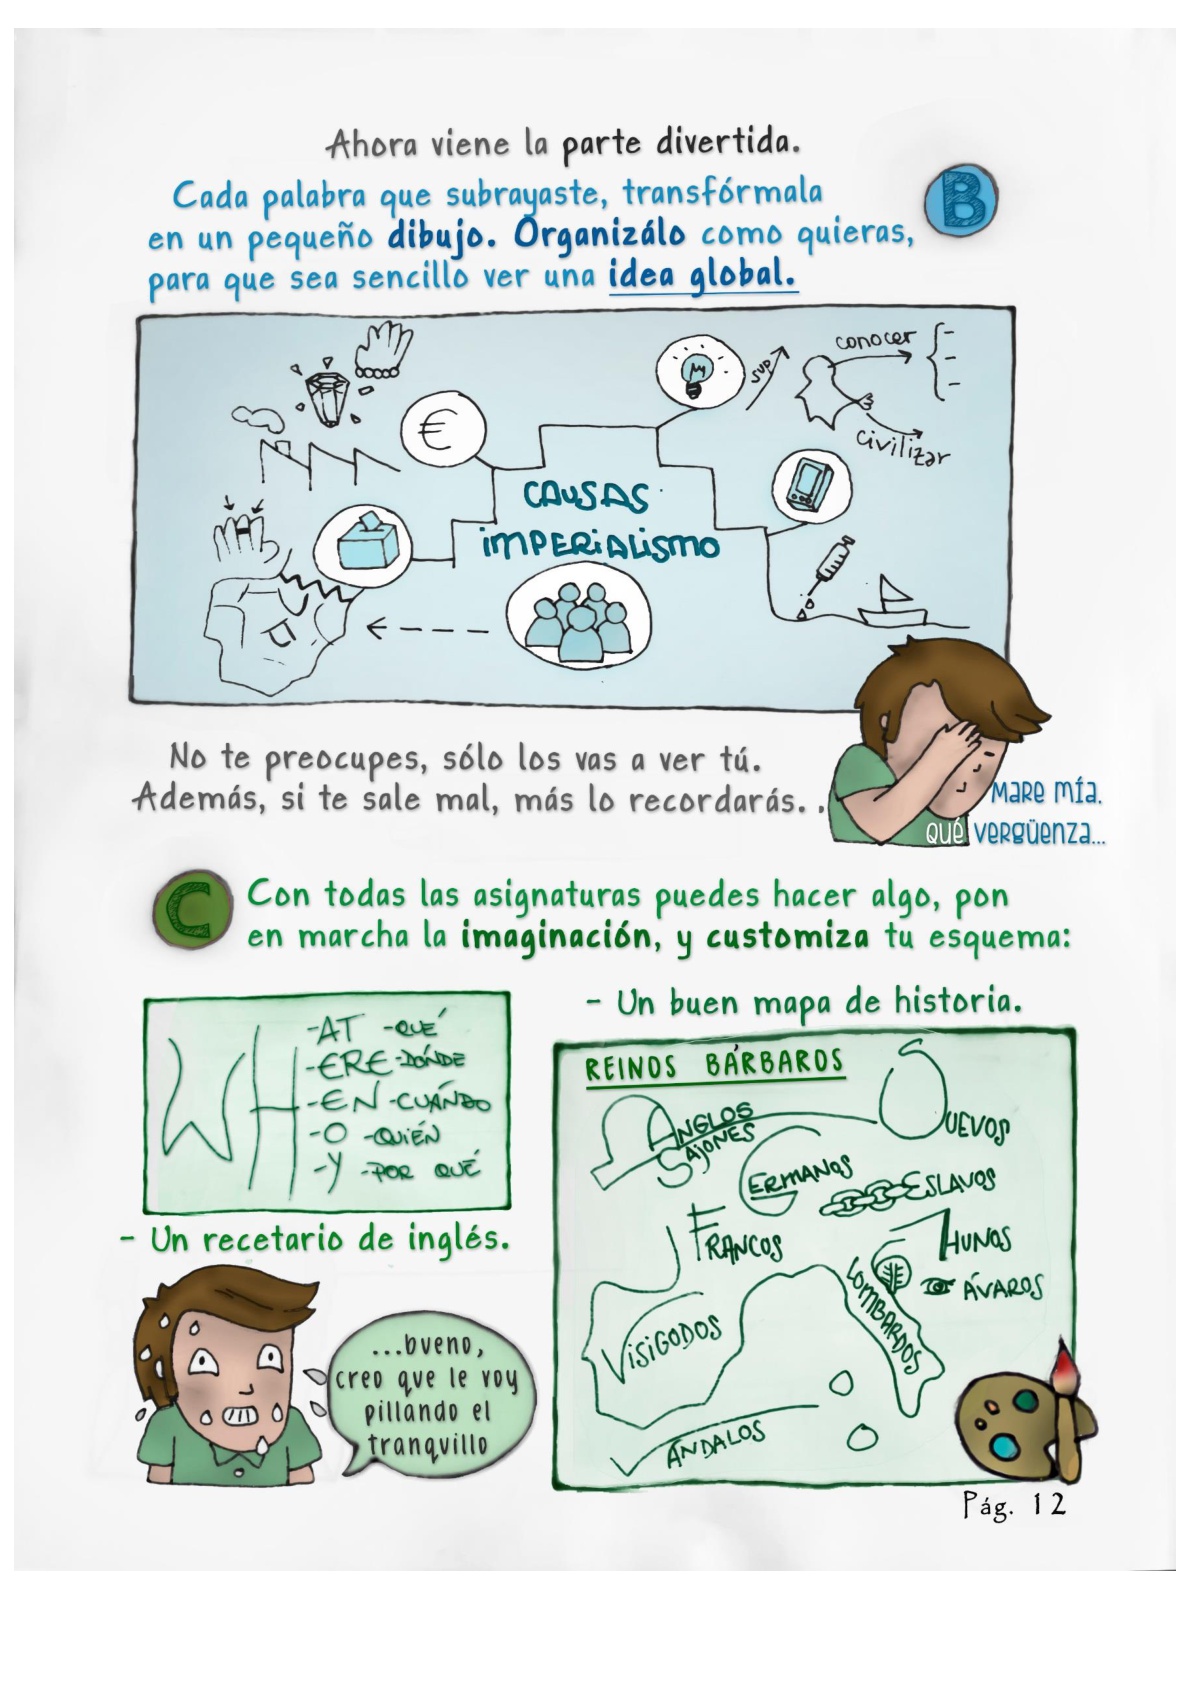 Ahora viene la parte divertida.
B
Cada palabra que subrayaste, transfórmala
en un pequeño dibujo. Organizálo como quieras,
para que sea sencillo ver una idea global.
€
SUP
conocer
civilizar
CAUSAS
IMPERIALISMO
No te preocupes, sólo los vas a ver tú.
Además, si te sale mal, más lo recordarás. .
MARE MÍA.
QUÉ VERGÜENZA...
C
Con todas las asignaturas puedes hacer algo, pon
en marcha la imaginación, y customiza tu esquema:
WH
-AT -QUÉ
-ERE-DÓNDE
-EN -CUÁNDO
-O -QUIÉN
-Y -POR QUÉ
- Un recetario de inglés.
...bueno,
creo que le voy
pillando el
tranquillo
- Un buen mapa de historia.
REINOS BÁRBAROS
ANGLOS
SAJONES
UEVOS
GERMANOS
ESLAVOS
FRANCOS
HUNOS
LOMBARDOS
ÁVAROS
VISIGODOS
VÁNDALOS
Pág. 12